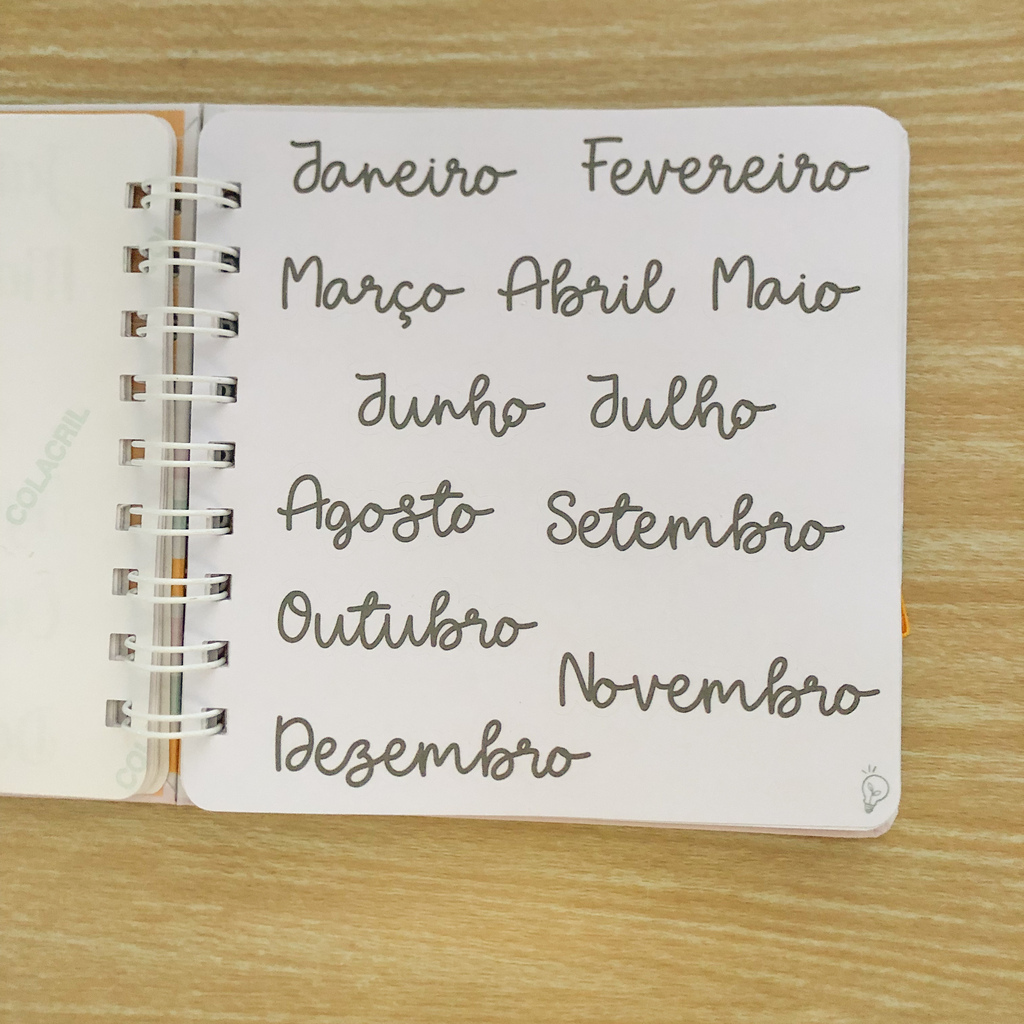 Janeiro Fevereiro
Março Abril Maio
Junho Julho
Agosto Setembro
Outubro
Novembro
Dezembro
COLACRIL